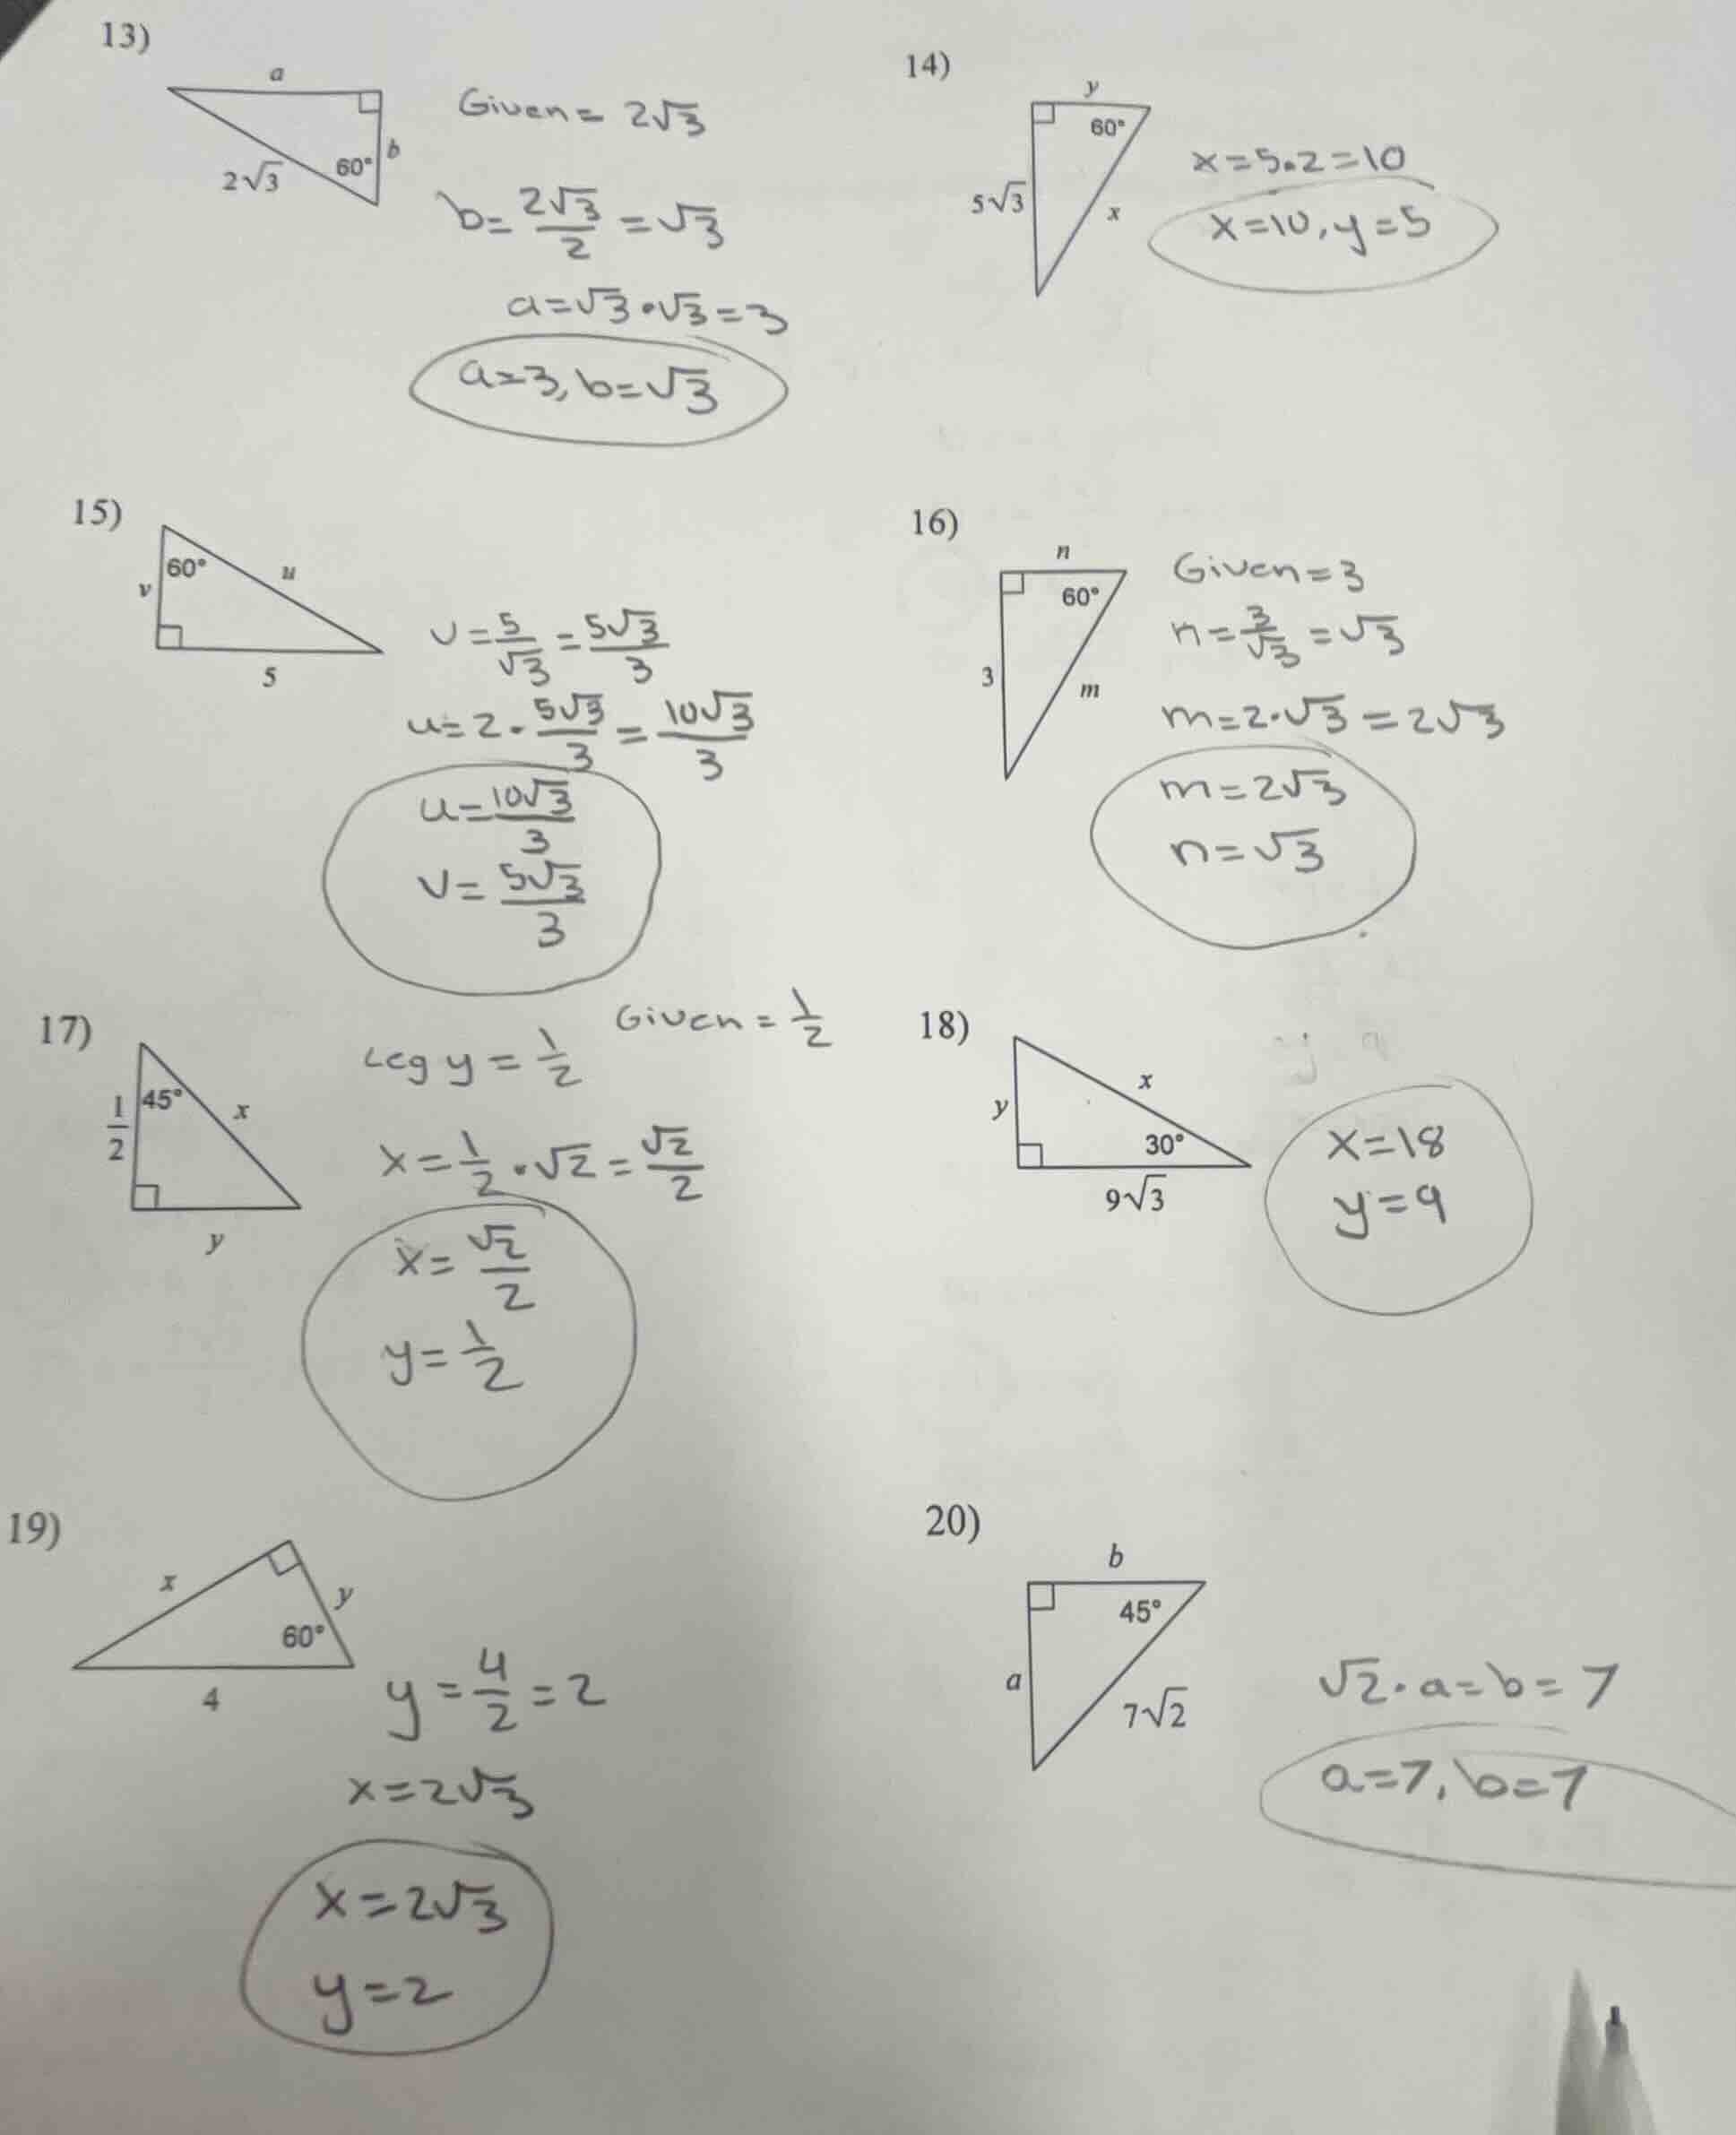 13)
a
b
2√3
60°
Given = 2√3
b = 2√3/2 = √3
a = √3 • √3 = 3
a = 3, b = √3
14)
y
60°
5√3
x
x = 5.2 = 10
x = 10, y = 5
15)
60°
u
v
5
v = 5/√3 = 5√3/3
u = 2 · 5√3/3 = 10√3/3
u = 10√3/3
v = 5√3/3
16)
n
60°
3
m
Given = 3
n = 3/√3 = √3
m = 2·√3 = 2√3
m = 2√3
n = √3
17)
1/2
45°
x
y
Given = 1/2
Leg y = 1/2
x = 1/2 • √2 = √2/2
x = √2/2
y = 1/2
18)
x
y
30°
9√3
x = 18
y = 9
19)
x
y
60°
4
y = 4/2 = 2
x = 2√3
x = 2√3
y = 2
20)
b
45°
a
7√2
√2 · a = b = 7
a = 7, b = 7